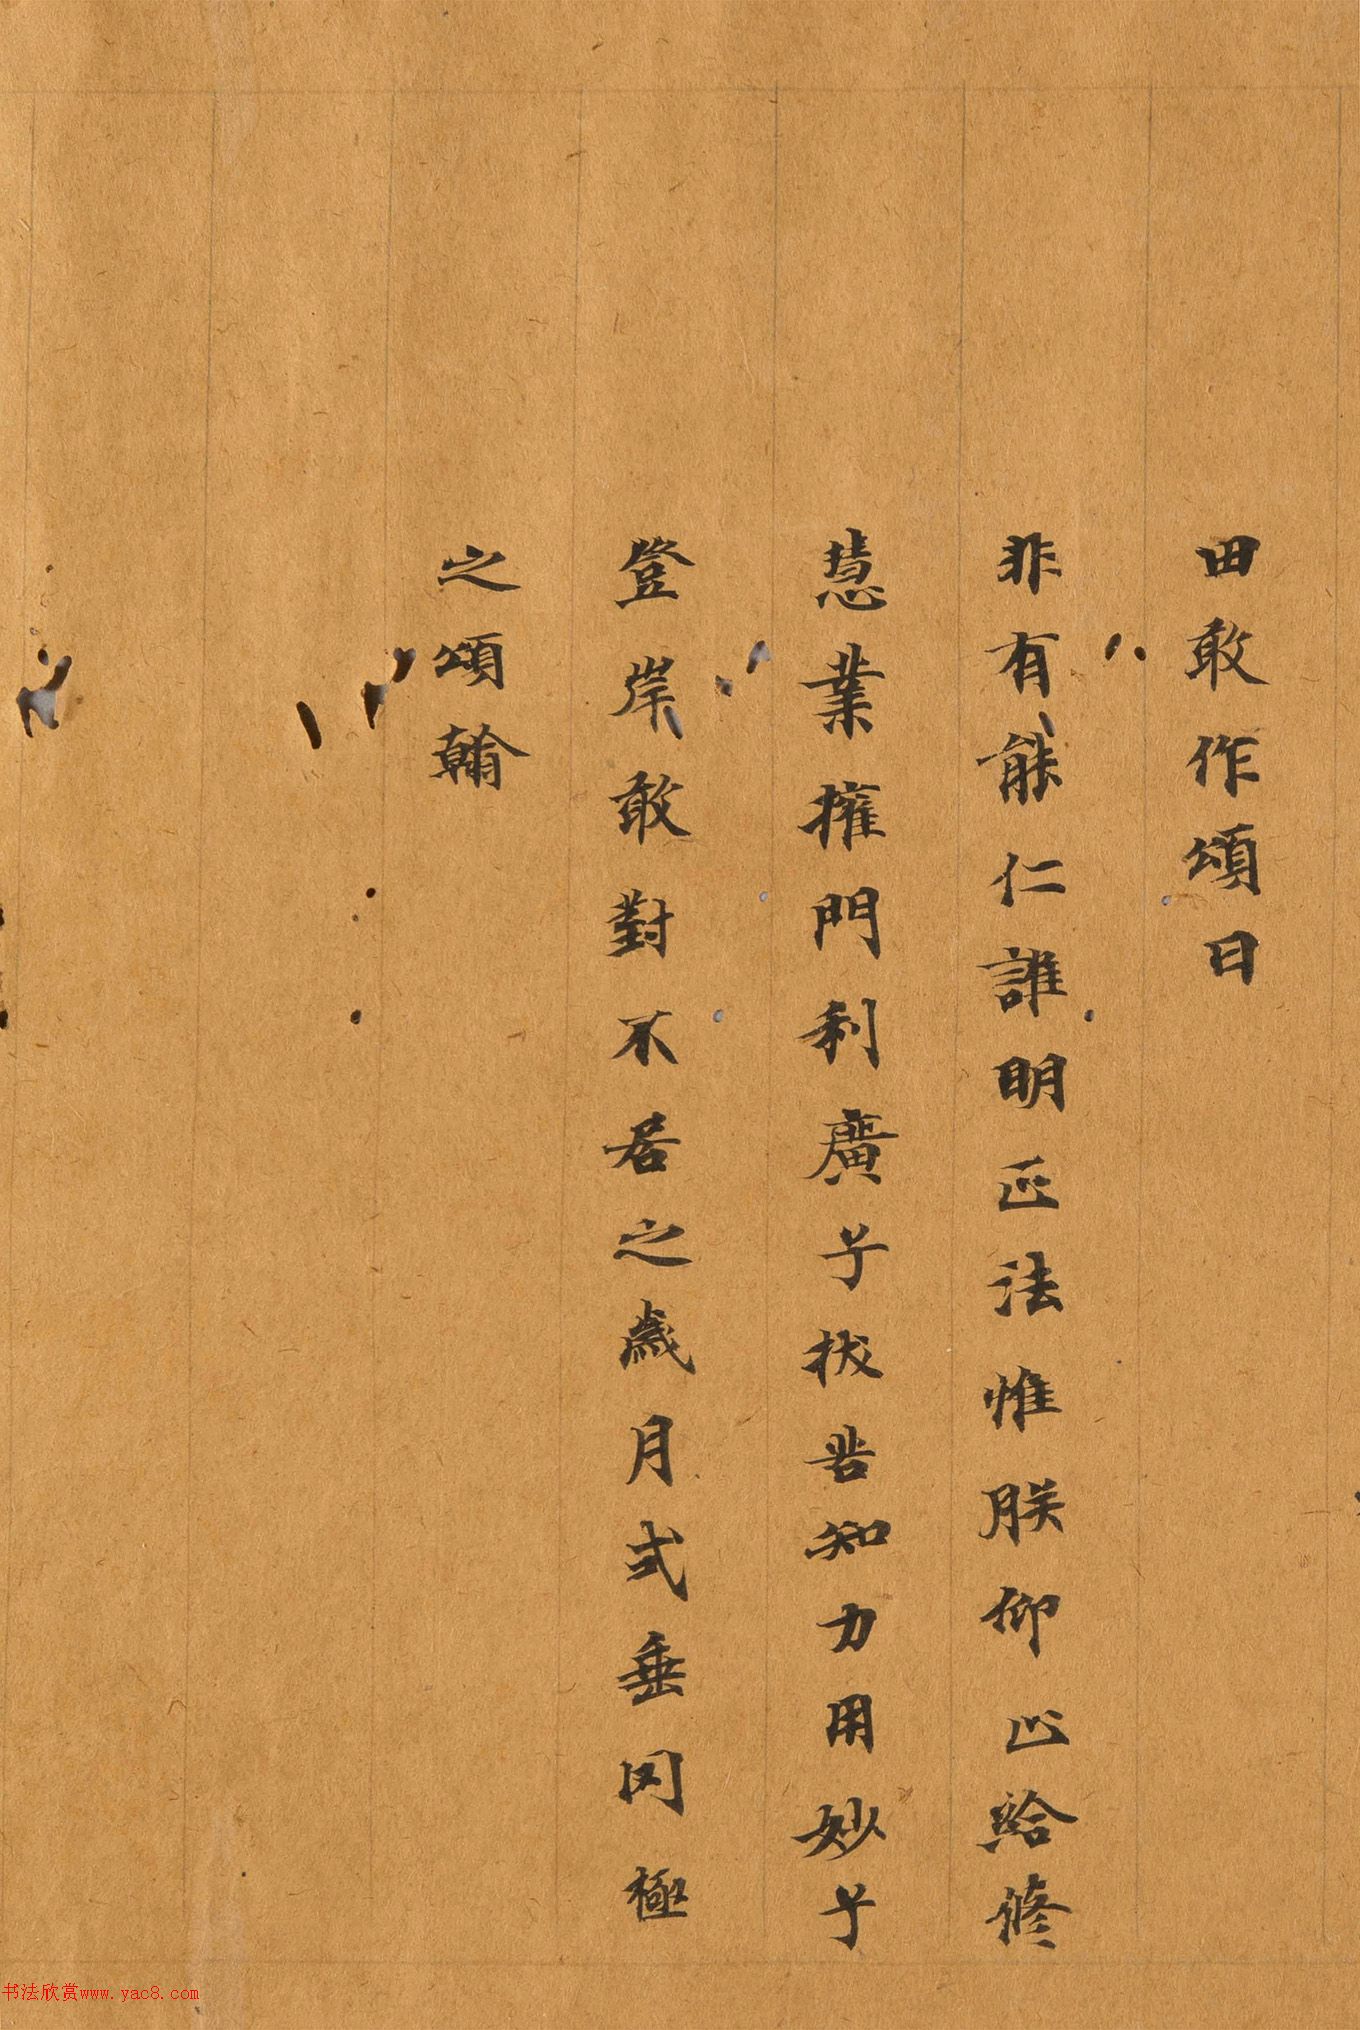 田敢作頌曰
非有能仁誰明正法惟朕仰止給修
慧業權門利廣乎拔苦知力用妙乎
登岸敢對不居之歲月式垂罔極
之頌翰
书法欣赏www.yac8.com